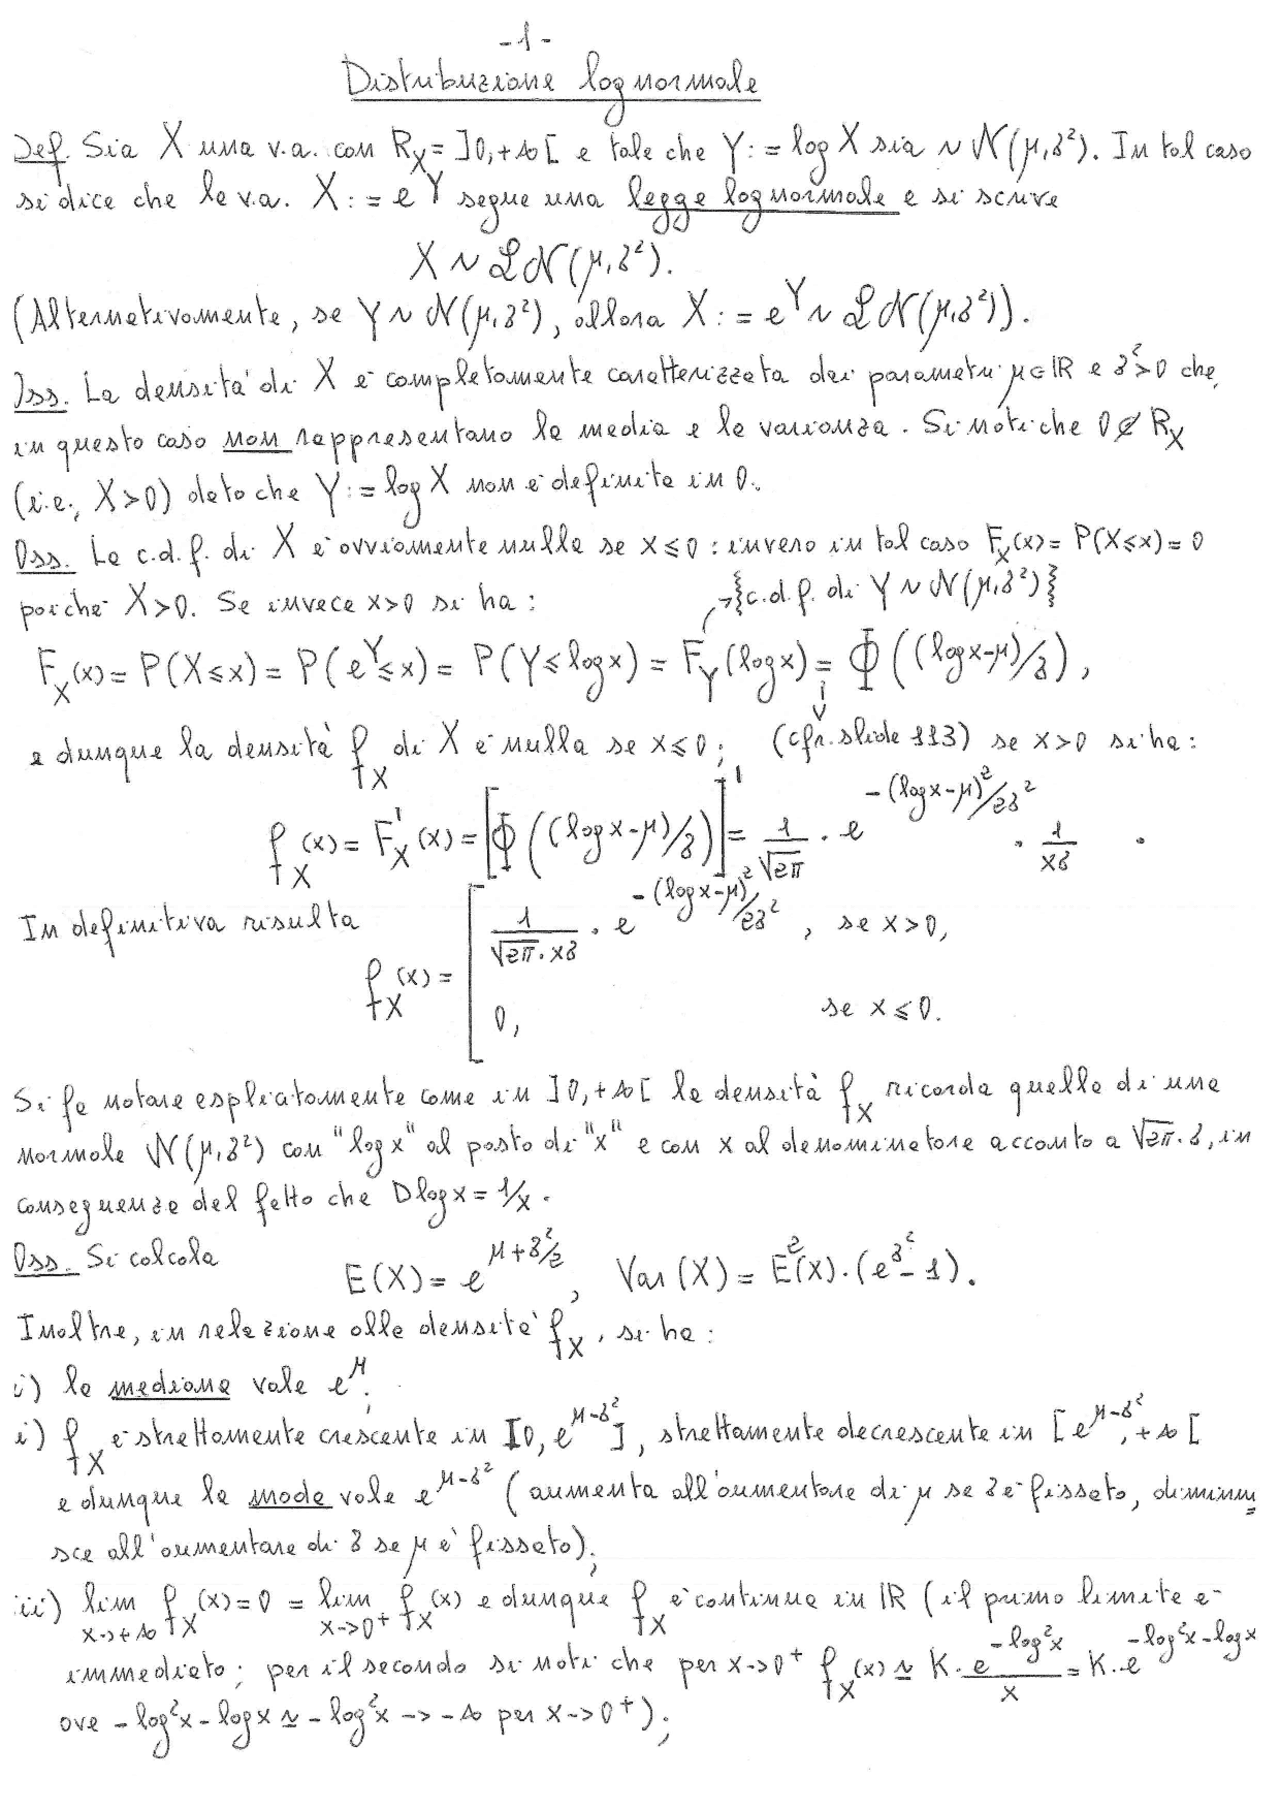 -1-
Distribuzione lognormale
Def. Sia X una v.a. con R_X = ]0,+∞[ e tale che Y := log X sia ~ N(μ,σ²). In tal caso
si dice che la v.a. X := e^Y segue una legge lognormale e si scrive
X ~ LN(μ,σ²).
(Alternativamente, se Y ~ N(μ,σ²), allora X := e^Y ~ LN(μ,σ²)).
Oss. La densità di X è completamente caratterizzata dai parametri μ∈ℝ e σ²>0 che,
in questo caso non rappresentano la media e la varianza. Si noti che 0 ∉ R_X
(i.e., X>0) dato che Y := log X non è definita in 0.
Oss. La c.d.f. di X è ovviamente nulla se x≤0 : invero in tal caso F_X(x) = P(X≤x) = 0
poiché X>0. Se invece x>0 si ha :
→{c.d.f. di Y ~ N(μ,σ²)}
F_X(x) = P(X≤x) = P(e^Y≤x) = P(Y≤log x) = F_Y(log x) = Φ((log x-μ)/σ),
e dunque la densità f_X di X è nulla se x≤0; (cfr. slide 113) se x>0 si ha :
f_X(x) = F'_X(x) = [Φ((log x-μ)/σ)]' = 1/√2π · e^{-(log x-μ)²/2σ²} · 1/xσ .
In definitiva risulta
f_X(x) = [ 1/(√2π · xσ) · e^{-(log x-μ)²/2σ²} , se x>0,
0, se x≤0.
Si fa notare esplicitamente come in ]0,+∞[ la densità f_X ricorda quella di una
normale N(μ,σ²) con "log x" al posto di "x" e con x al denominatore accanto a √2π·σ, in
conseguenza del fatto che D log x = 1/x .
Oss. Si calcola E(X) = e^{μ+σ²/2}, Var(X) = E²(X)·(e^{σ²}-1).
Inoltre, in relazione alla densità f_X, si ha :
i) la mediana vale e^μ;
i) f_X è strettamente crescente in ]0, e^{μ-σ²}], strettamente decrescente in [e^{μ-σ²},+∞[
e dunque la moda vale e^{μ-σ²} (aumenta all'aumentare di μ se σ è fissato, diminui
sce all'aumentare di σ se μ è fissato);
ii) lim_{x→+∞} f_X(x) = 0 = lim_{x→0⁺} f_X(x) e dunque f_X è continua in ℝ (il primo limite è
immediato; per il secondo si noti che per x→0⁺ f_X(x) ≃ K· e^{-log²x}/x = K·e^{-log²x-log x}
ove -log²x-log x ≃ -log²x → -∞ per x→0⁺);